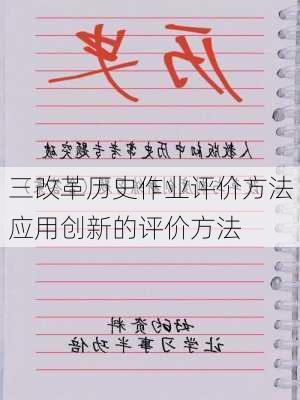 历史
人教版初中历史常考专题突破
三改革历史作业评价方法
应用创新的评价方法
好的资料
让学习事半功倍